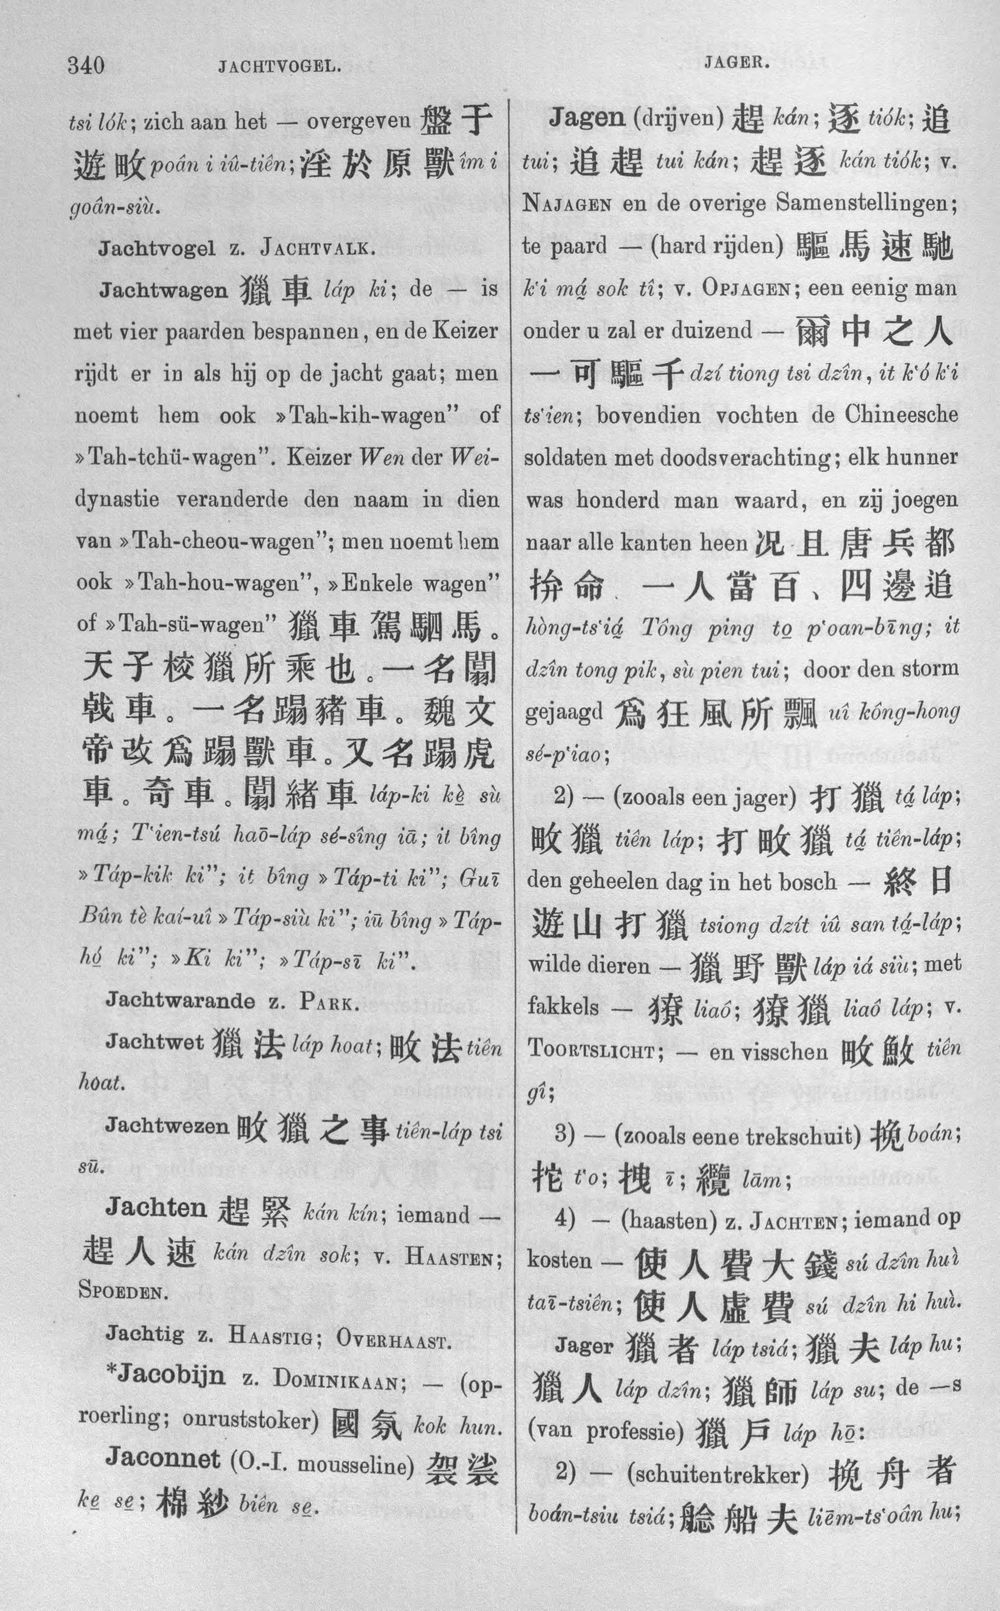 340
JACHTVOGEL.
tsi lók; zich aan het — overgeven 盤于
遊畋 poán i iû-tiên; 淫於原獸 îm i
goân-siù.
Jachtvogel z. JACHTVALK.
Jachtwagen 獵車 láp ki; de — is
met vier paarden bespannen, en de Keizer
rijdt er in als hij op de jacht gaat; men
noemt hem ook »Tah-kih-wagen" of
»Tah-tchü-wagen". Keizer Wen der Wei-
dynastie veranderde den naam in dien
van »Tah-cheou-wagen"; men noemt hem
ook »Tah-hou-wagen", »Enkele wagen"
of »Tah-sü-wagen" 獵車駕駟馬。
天子校獵所乘也。一名闟
戟車。一名蹋豬車。魏文
帝改爲蹋獸車。又名蹋虎
車。奇車。闟緒車 láp-ki kè̱ sù
má̱; T‘ien-tsú haō-láp sé-sîng iā; it bîng
»Táp-kik ki"; it bîng »Táp-ti ki"; Guī
Bûn tè kaí-uî »Táp-siù ki"; iū bîng »Táp-
hó̱ ki"; »Ki ki"; »Táp-sī ki".
Jachtwarande z. PARK.
Jachtwet 獵法 láp hoat; 畋法 tiên
hoat.
Jachtwezen 畋獵之事 tiên-láp tsi
sū.
Jachten 趕緊 kán kín; iemand —
趕人速 kán dzîn sok; v. HAASTEN;
SPOEDEN.
Jachtig z. HAASTIG; OVERHAAST.
*Jacobijn z. DOMINIKAAN; — (op-
roerling; onruststoker) 國氛 kok hun.
Jaconnet (O.-I. mousseline) 袈裟
ke̱ se̱; 棉紗 biên se̱.
JAGER.
Jagen (drijven) 趕 kán; 逐 tiók; 追
tui; 追趕 tui kán; 趕逐 kán tiók; v.
NAJAGEN en de overige Samenstellingen;
te paard — (hard rijden) 驅馬速馳
k‘i má̱ sok tî; v. OPJAGEN; een eenig man
onder u zal er duizend — 爾中之人
一可驅千 dzí tiong tsi dzîn, it k‘ó k‘i
ts‘ien; bovendien vochten de Chineesche
soldaten met doodsverachting; elk hunner
was honderd man waard, en zij joegen
naar alle kanten heen 况且唐兵都
拚命. 一人當百、四邊追
hòng-ts‘iá̱ Tông ping to̱ p‘oan-bīng; it
dzîn tong pik, sù pien tui; door den storm
gejaagd 爲狂風所飄 uî kông-hong
sé-p‘iao;
2) — (zooals een jager) 打獵 tá̱ láp;
畋獵 tiên láp; 打畋獵 tá̱ tiên-láp;
den geheelen dag in het bosch — 終日
遊山打獵 tsiong dzít iû san tá̱-láp;
wilde dieren — 獵野獸 láp iá siù; met
fakkels — 獠 liaô; 獠獵 liaô láp; v.
TOORTSLICHT; — en visschen 畋䱷 tiên
gî;
3) — (zooals eene trekschuit) 挽 boán;
拕 t‘o; 拽 ī; 纜 lām;
4) — (haasten) z. JACHTEN; iemand op
kosten — 使人費大錢 sú dzîn huì
taī-tsiên; 使人虛費 sú dzîn hi huì.
Jager 獵者 láp tsiá; 獵夫 láp hu;
獵人 láp dzîn; 獵師 láp su; de —s
(van professie) 獵戶 láp hō̱:
2) — (schuitentrekker) 挽舟者
boán-tsiu tsiá; 艌船夫 liēm-ts‘oân hu;